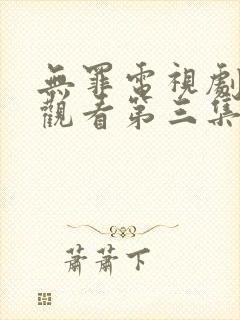 無罪電視劇
觀看第三集
蕭蕭下